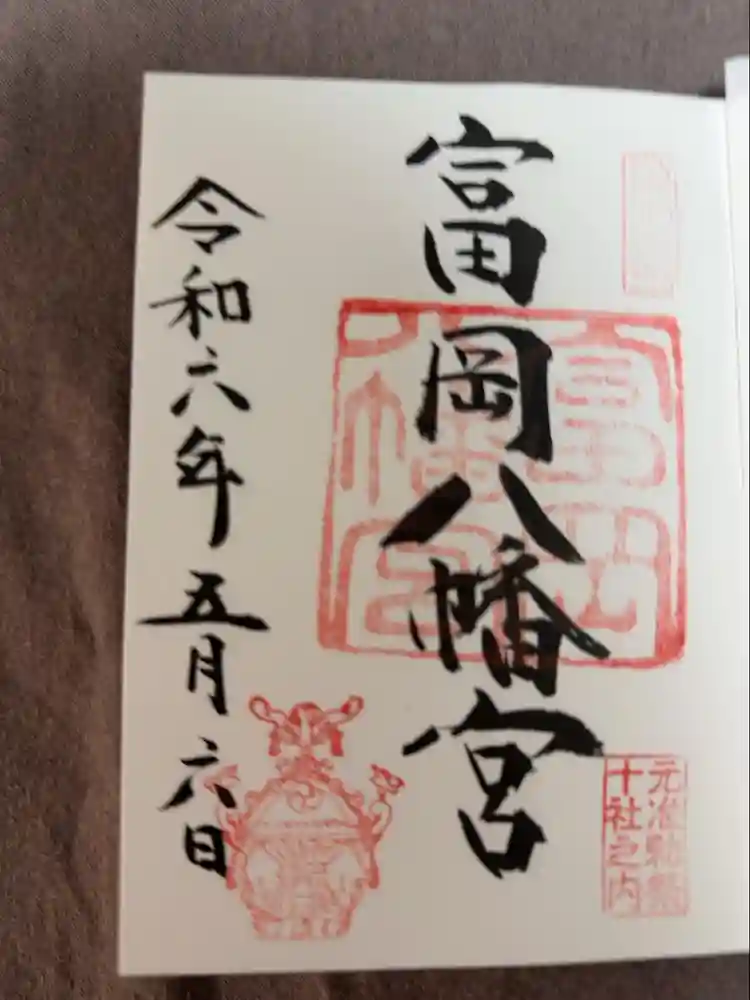 富岡八幡宮
元准勅祭
十社之内
令和六年五月六日